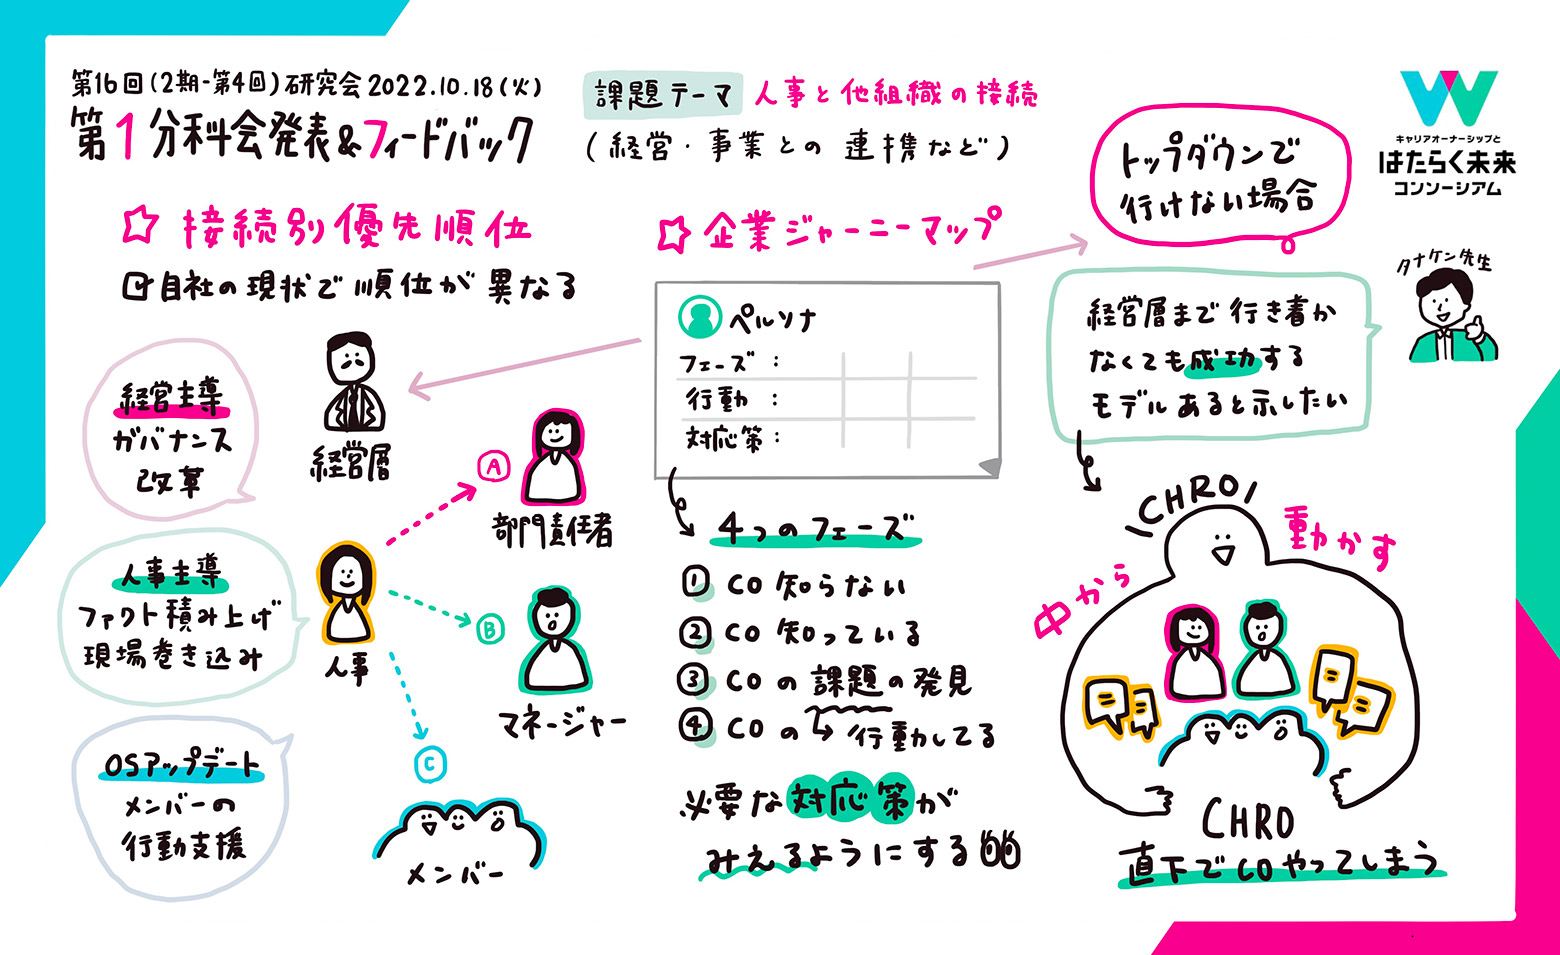 第16回(2期-第4回)研究会2022.10.18(火)
第1分科会発表&フィードバック
課題テーマ 人事と他組織の接続
(経営・事業との連携など)
キャリアオーナーシップと
はたらく未来
コンソーシアム
☆接続別優先順位
自社の現状で順位が異なる
経営主導
ガバナンス
改革
経営層
人事主導
ファクト積み上げ
現場巻き込み
人事
OSアップデート
メンバーの
行動支援
A
部門責任者
B
マネージャー
C
メンバー
☆企業ジャーニーマップ
ペルソナ
フェーズ:
行動:
対応策:
4つのフェーズ
① CO知らない
② CO知っている
③ COの課題の発見
④ COの↳行動してる
必要な対応策が
みえるようにする
トップダウンで
行けない場合
タナケン先生
経営層まで行き着か
なくても成功する
モデルあると示したい
\CHRO/
中から動かす
CHRO
直下でCOやってしまう